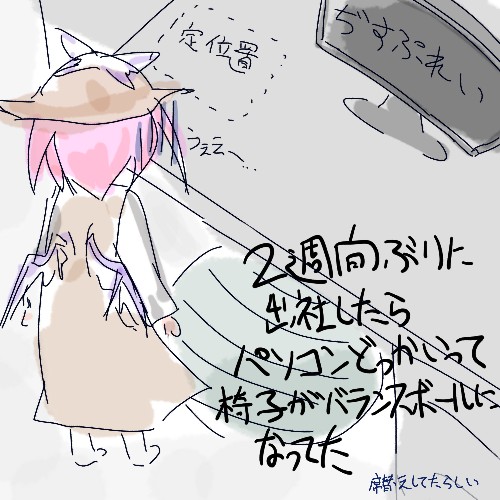 ぢすぷれい
定位置
うぇぇ〜…
2週間ぶりに
出社したら
パソコンどっかいって
椅子がバランスボールに
なってた
席替えしてたらしい